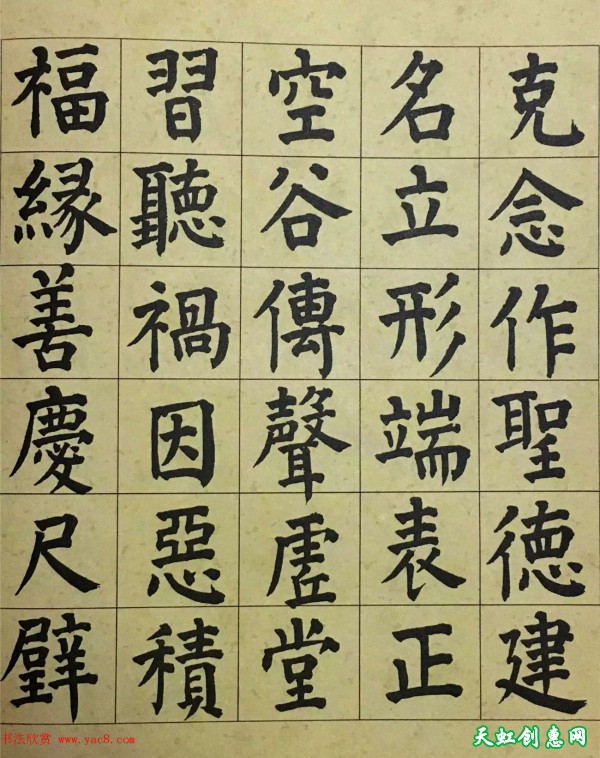 克念作聖德建
名立形端表正
空谷傳聲虛堂
習聽禍因惡積
福緣善慶尺璧
书法欣赏 www.yac8.com
天虹创惠网